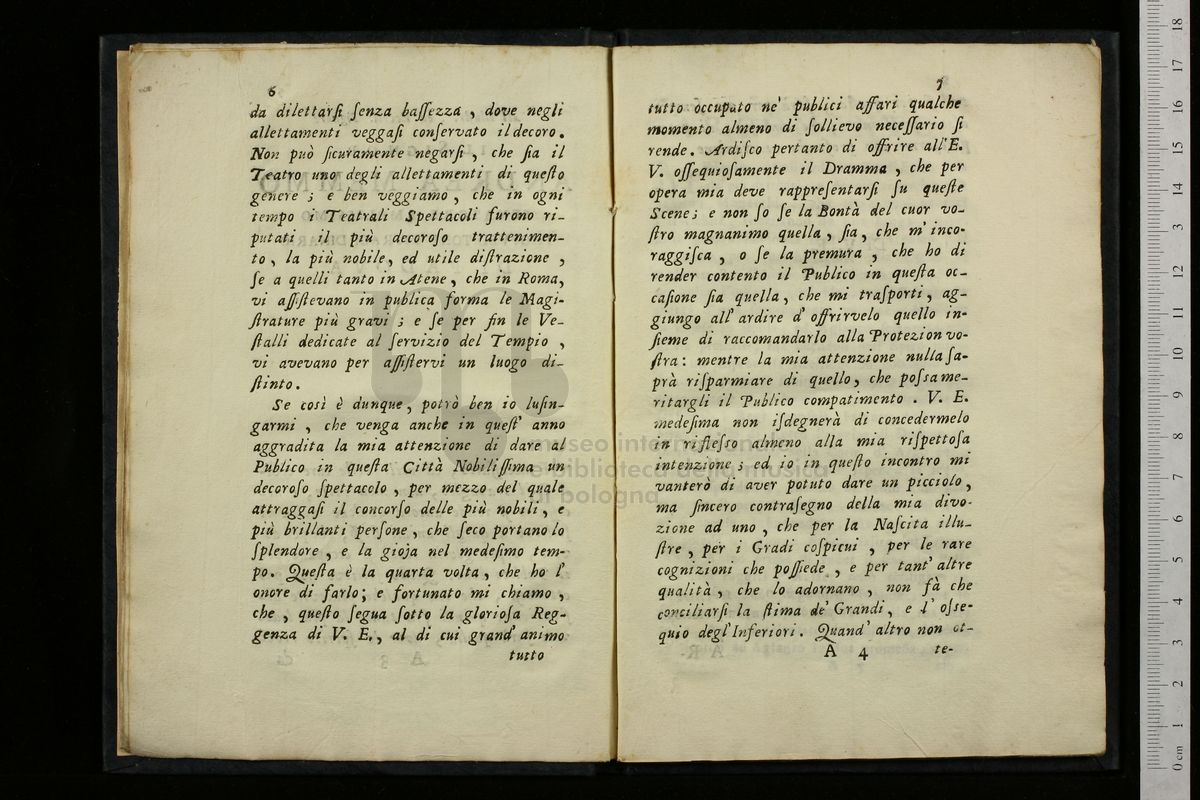 6
da dilettarſi ſenza baſſezza , dove negli
allettamenti veggaſi conſervato il decoro.
Non può ſicuramente negarſi , che ſia il
Teatro uno degli allettamenti di queſto
genere ; e ben veggiamo , che in ogni
tempo i Teatrali Spettacoli furono ri-
putati il più decoroſo trattenimen-
to , la più nobile, ed utile diſtrazione ,
ſe a quelli tanto in Atene , che in Roma,
vi aſſiſtevano in publica forma le Magi-
ſtrature più gravi ; e ſe per fin le Ve-
ſtalli dedicate al ſervizio del Tempio ,
vi avevano per aſſiſtervi un luogo di-
ſtinto.
Se così è dunque, potrò ben io luſin-
garmi , che venga anche in queſt' anno
aggradita la mia attenzione di dare al
Publico in queſta Città Nobiliſſima un
decoroſo ſpettacolo , per mezzo del quale
attraggaſi il concorſo delle più nobili, e
più brillanti perſone , che ſeco portano lo
ſplendore , e la gioja nel medeſimo tem-
po. Queſta è la quarta volta, che ho l'
onore di farlo; e fortunato mi chiamo ,
che , queſto ſegua ſotto la glorioſa Reg-
genza di V. E., al di cui grand' animo
tutto
7
tutto occupato ne' publici affari qualche
momento almeno di ſollievo neceſſario ſi
rende. Ardiſco pertanto di offrire all' E.
V. oſſequioſamente il Dramma , che per
opera mia deve rappreſentarſi ſu queſte
Scene; e non ſo ſe la Bontà del cuor vo-
ſtro magnanimo quella , ſia, che m' inco-
raggiſca , o ſe la premura , che ho di
render contento il Publico in queſta oc-
caſione ſia quella, che mi traſporti, ag-
giungo all' ardire d' offrirvelo quello in-
ſieme di raccomandarlo alla Protezion vo-
ſtra: mentre la mia attenzione nulla ſa-
prà riſparmiare di quello, che poſsa me-
ritargli il Publico compatimento . V. E.
medeſima non iſdegnerà di concedermelo
in rifleſso almeno alla mia riſpettoſa
intenzione ; ed io in queſto incontro mi
vanterò di aver potuto dare un picciolo,
ma ſincero contraſegno della mia divo-
zione ad uno , che per la Naſcita illu-
ſtre , per i Gradi coſpicui , per le rare
cognizioni che poſſiede , e per tant' altre
qualità , che lo adornano , non fà che
conciliarſi la ſtima de' Grandi, e l' oſse-
quio degl' Inferiori. Quand' altro non ot-
A 4 te-
museo internazionale
e biblioteca della musica
di bologna
0 cm 1 2 3 4 5 6 7 8 9 10 11 12 13 14 15 16 17 18